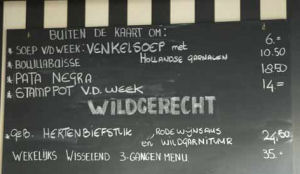 BUITEN DE KAART OM:
* SOEP V.D WEEK: VENKELSOEP met HOLLANDSE GARNALEN 6.=
* BOUILLABAISSE 10.50
* PATA NEGRA 18.50
* STAMPPOT V.D. WEEK 14.=
WILDGERECHT
* GEB. HERTENBIEFSTUK, RODEWIJNSAUS
en WILDGARNITUUR 24,50
WEKELIJKS WISSELEND 3-GANGEN MENU 35.-